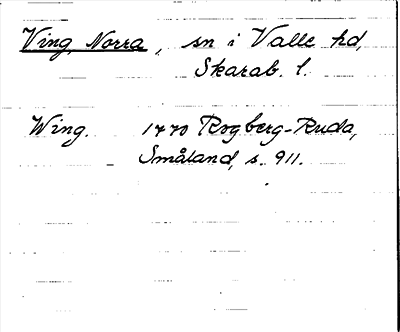 Ving, Norra, sn i Valle hd,
Skarab. l.
Wing. 1770 Rogberg-Ruda,
Småland, s. 911.